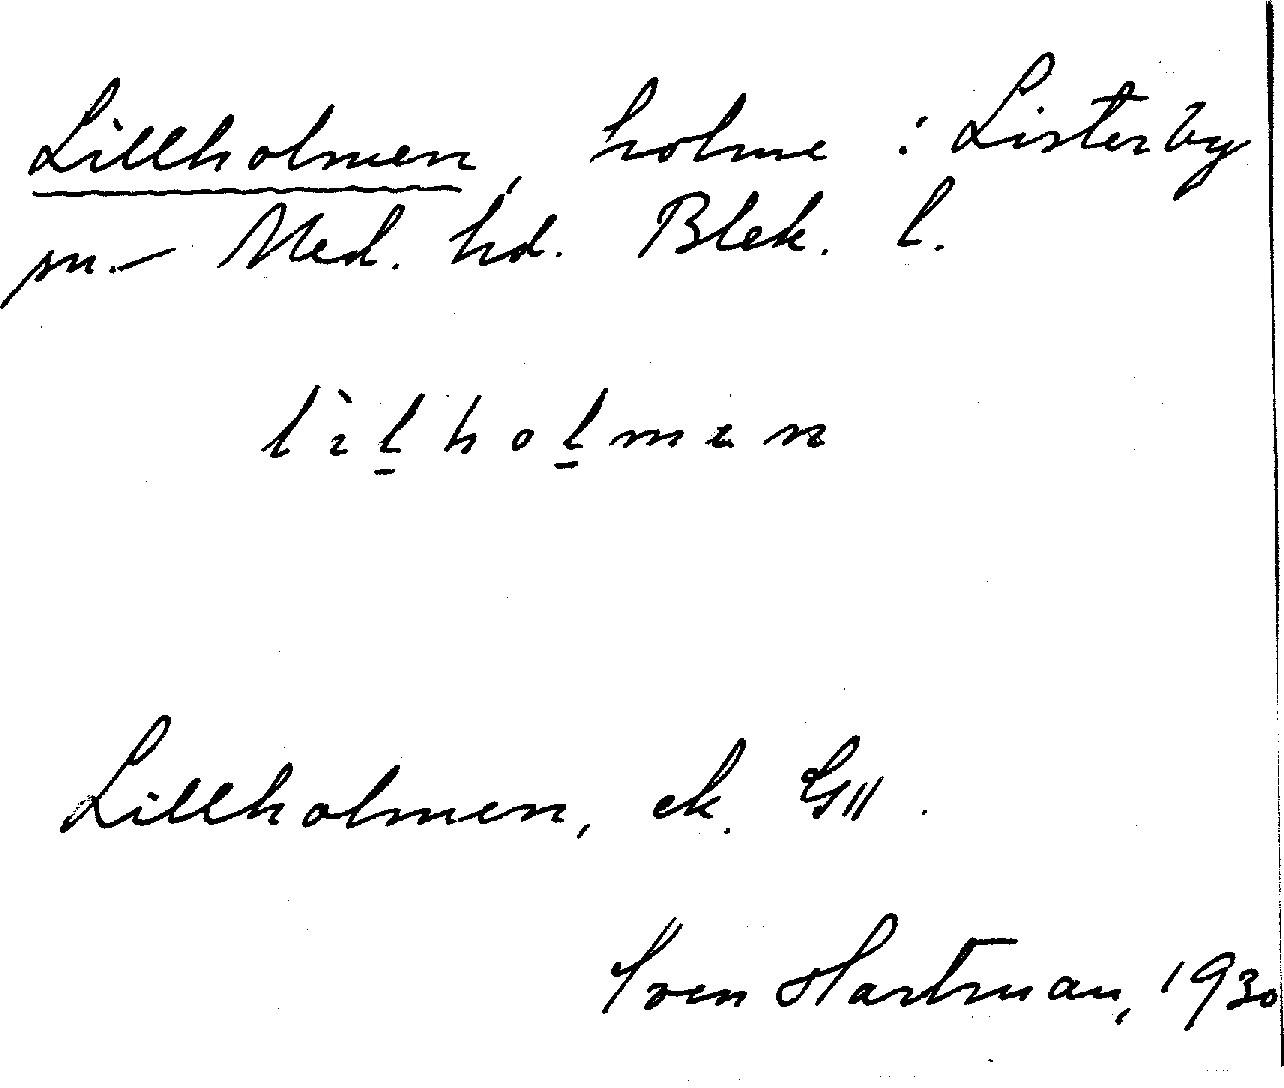 Lillholmen, holme : Listerby
sn. Med. hd. Blek. l.
lìlholmen
Lillholmen, ek. GII.
Sven Hartman, 1930